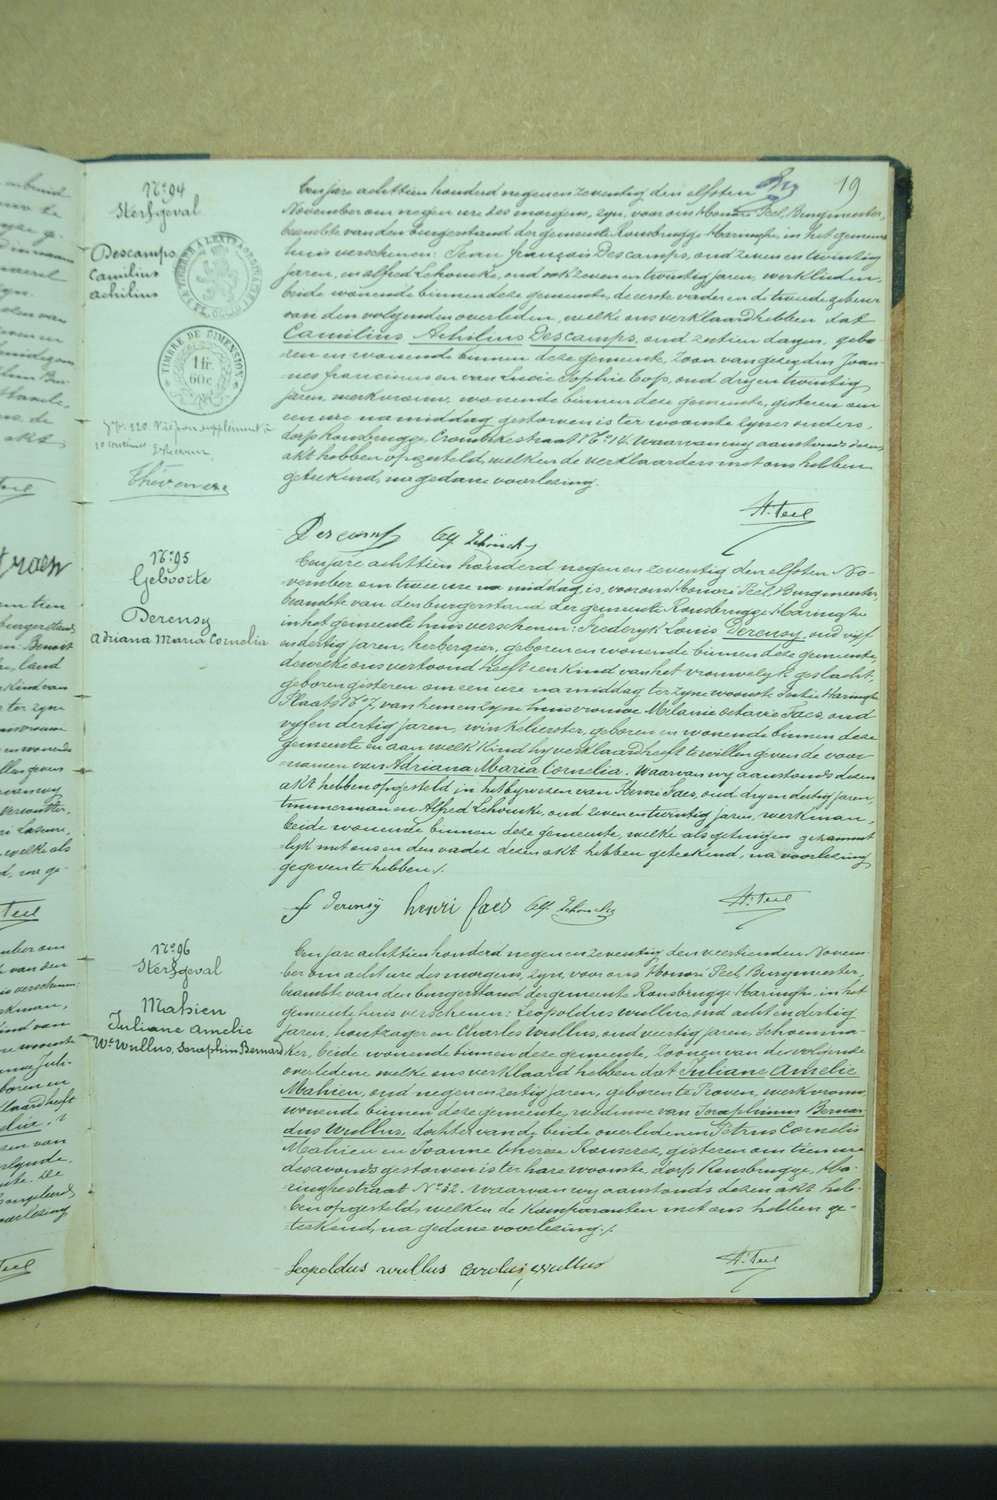 19
N° 94
Sterfgeval
Descamps
Camilius
Achilius
TIMBRE DE DIMENSION
1 fr.
60 c.
Een jare achttien honderd negen en zeventig den elfsten
November om negen ure des morgens, zyn, voor ons Honoré Peel, Burgmeester,
beambte van den burgerstand der gemeente Rousbrugge-Haringhe, in het gemeente
huis verschenen: Jean François Descamps, oud zeven en twintig
jaren, en Alfred Schoucke, oud ook zeven en twintig jaren, werklieden,
beide wonende binnen deze gemeente, de eerste vader en de tweede gebuur
van den volgenden overleden, welke ons verklaard hebben dat
Camilius Achilius Descamps, oud zestien dagen, gebo-
ren en wonende binnen deze gemeente, zoon van gezegden Joan-
nes Franciscus en van Lucie Sophie Cop, oud dry en twintig
jaren, werkvrouw, wonende binnen deze gemeente, gisteren om
een ure na middag gestorven is ter woonste zyner ouders,
dorp Rousbrugge, Crombekestraat N° 14. Waarvan wy aanstonds dezen
akt hebben opgesteld, welken de verklaarders met ons hebben
geteekend, na gedane voorlezing.
H. Peel
N° 95
Geboorte
Derensy
Adriana Maria Cornelia
Een jare achttien honderd negen en zeventig den elfsten No-
vember om twee ure na middag, is, voor ons Honoré Peel, Burgmeester,
beambte van den burgerstand der gemeente Rousbrugge-Haringhe
in het gemeente huis verschenen: Frederyk Louis Derensy, oud vyf
en dertig jaren, herbergier, geboren en wonende binnen deze gemeente,
dewelke ons vertoond heeft een kind van het vrouwelyk geslacht,
geboren gisteren om een ure na middag ter zyne woonste sectie Haringhe
Plaats N° 7, van hem en zyne huisvrouw Melanie Octavie Faes, oud
vyf en dertig jaren, winkelierster, geboren en wonende binnen deze
gemeente en aan welk kind hy verklaard heeft te willen geven de voor
namen van Adriana Maria Cornelia. Waarvan wy aanstonds dezen
akt hebben opgesteld in het bywezen van Henri Faes, oud dry en dertig jaren,
timmerman en Alfred Schoucke, oud zeven en twintig jaren, werkman,
beide wonende binnen deze gemeente, welke als getuigen gezament
lyk met ons en den vader dezen akt hebben geteekend, na voorlezing
gegeven te hebben.
f Derensy henri faes
H. Peel
N° 96
Sterfgeval
Mahieu
Juliane Amelie
We Wullus, Seraphin Bernard
Een jare achttien honderd negen en zeventig den veertienden Novem-
ber om acht ure des morgens, zyn, voor ons Honoré Peel, Burgmeester,
beambte van den burgerstand der gemeente Rousbrugge-Haringhe, in het
gemeente huis verschenen: Leopoldus Wullus, oud acht en dertig
jaren, houtzager en Charles Wullus, oud veertig jaren, schoenma-
ker, beide wonende binnen deze gemeente, zoonen van de volgende
overledene welke ons verklaard hebben dat Juliane Amelie
Mahieu, oud negen en zestig jaren, geboren te Proven, werkvrouw
wonende binnen deze gemeente, weduwe van Seraphinus Bernar
dus Wullus, dochter van de beide overledenen Petrus Cornelis
Mahieu en Joanne Therese Rouseré, gisteren om tien ure
des avonds gestorven is ter hare woonste, dorp Rousbrugge, Ha-
ringhestraat N° 32. Waarvan wy aanstonds dezen akt heb-
ben opgesteld, welken de komparanten met ons hebben ge-
teekend, na gedane voorlezing.
Leopoldus wullus carolus wullus
H. Peel